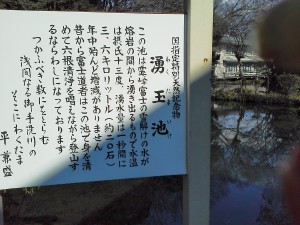 国指定特別天然記念物
湧玉池
この池は霊峰富士の雪解けの水が
熔岩の間から湧き出るもので水温
は摂氏十三度、湧水量は一秒間に
三、六キロリットル(約二〇石)
年中殆んど増減がありません
昔から富士道者はこの池で身を清
めて六根清浄を唱えながら登山す
るならわしになっております
つかふべきかずにをとらむ
浅間なる御手洗川の
そこにわくたま
平兼盛